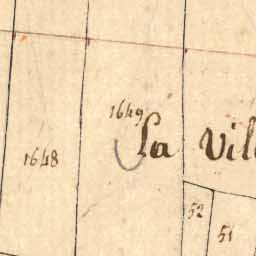 1649
La Vil
1648
52
51